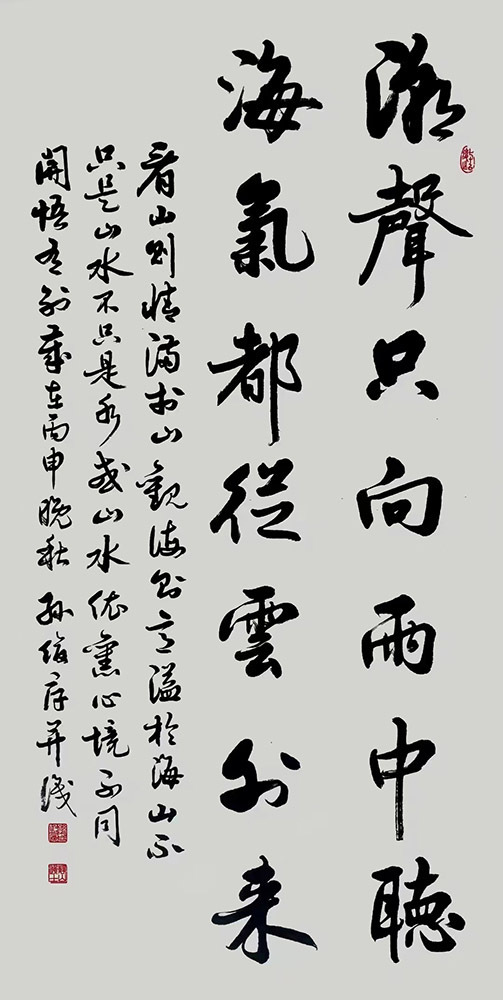 潮聲只向雨中聽
海氣都從雲外来
看山則情滿於山觀海則意溢於海山不
只是山水不只是水或山水依舊心境不同
開悟有别歲在丙申晚秋 孙俊并識